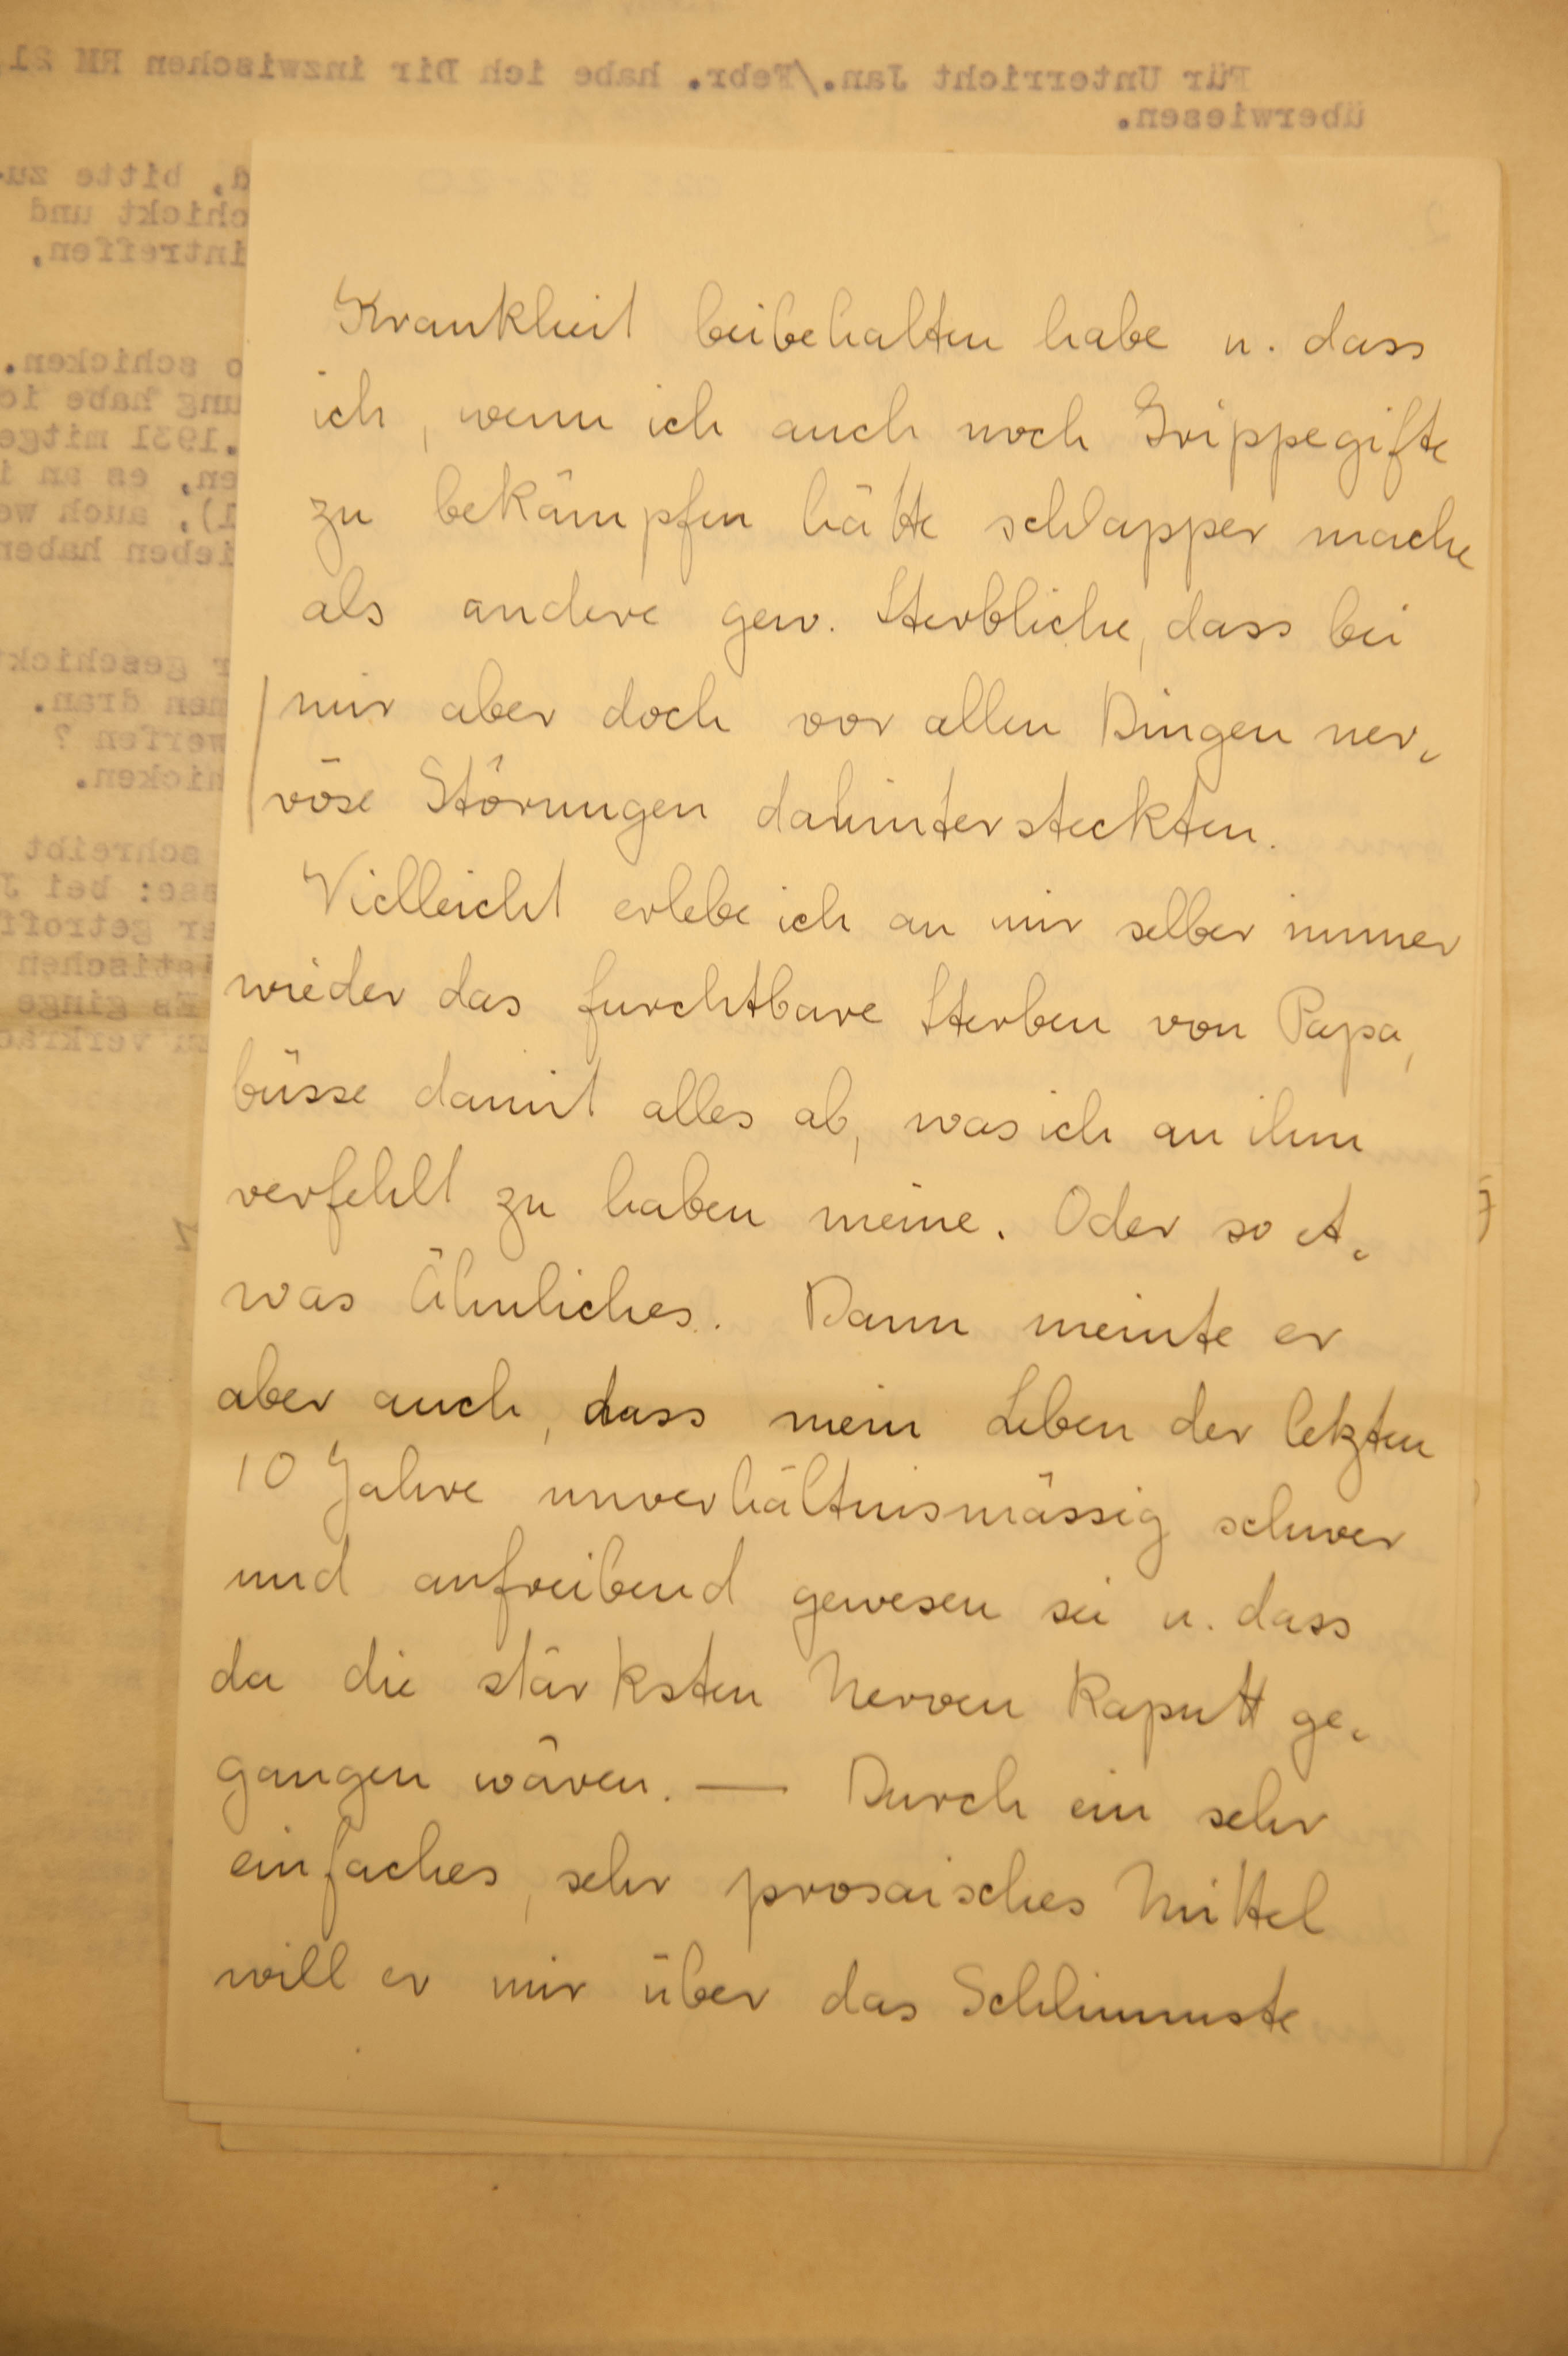 Für Unterricht Jan./Febr. habe ich Dir inzwischen RM 21
überwiesen.
d, bitte zu-
chickt und
intreffen,
o schicken.
ung habe ic
.1931 mitge
en, es an i
1), auch we
ieben haben
r geschickt
nen dran.
werfen ?
hicken.
schreibt
sse: bei J
er getroff
istischen
Es ginge
zu verkrac
Krankheit beibehalten habe u. dass
ich, wenn ich auch noch Grippegifte
zu bekämpfen hätte schlapper mache
als andere gew. Sterbliche, dass bei
mir aber doch vor allen Dingen ner-
vöse Störungen dahintersteckten.
Vielleicht erlebe ich an mir selber immer
wieder das furchtbare Sterben von Papa,
büsse damit alles ab, was ich an ihm
verfehlt zu haben meine. Oder so et-
was Ähnliches. Dann meinte er
aber auch, dass mein Leben der letzten
10 Jahre unverhältnismässig schwer
und aufreibend gewesen sei u. dass
da die stärksten Nerven kaputt ge-
gangen wären. — Durch ein sehr
einfaches, sehr prosaisches Mittel
will er mir über das Schlimmste